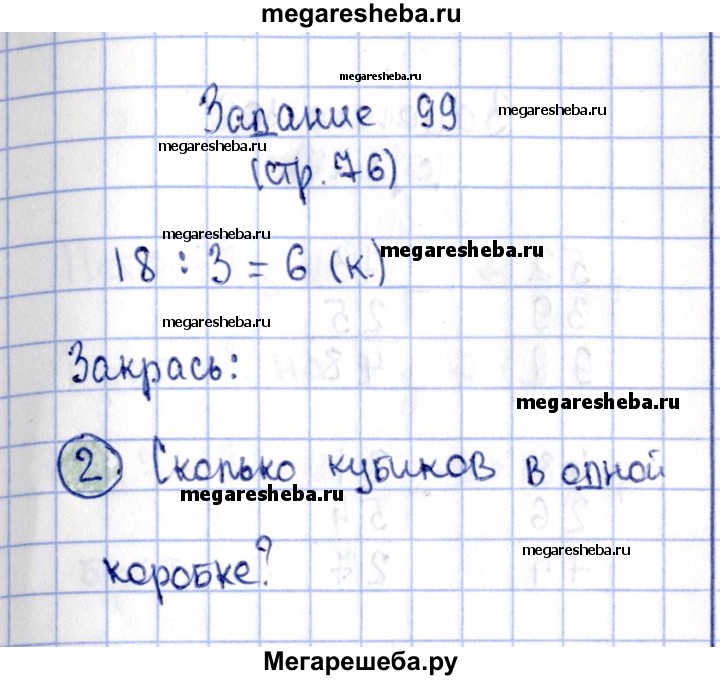 megaresheba.ru
megaresheba.ru
Задание 99
megaresheba.ru
megaresheba.ru
(стр. 76)
megaresheba.ru
18 : 3 = 6 (к.)
megaresheba.ru
megaresheba.ru
Закрась:
megaresheba.ru
2 Сколько кубиков в одной
megaresheba.ru
megaresheba.ru
коробке?
Мегарешеба.ру